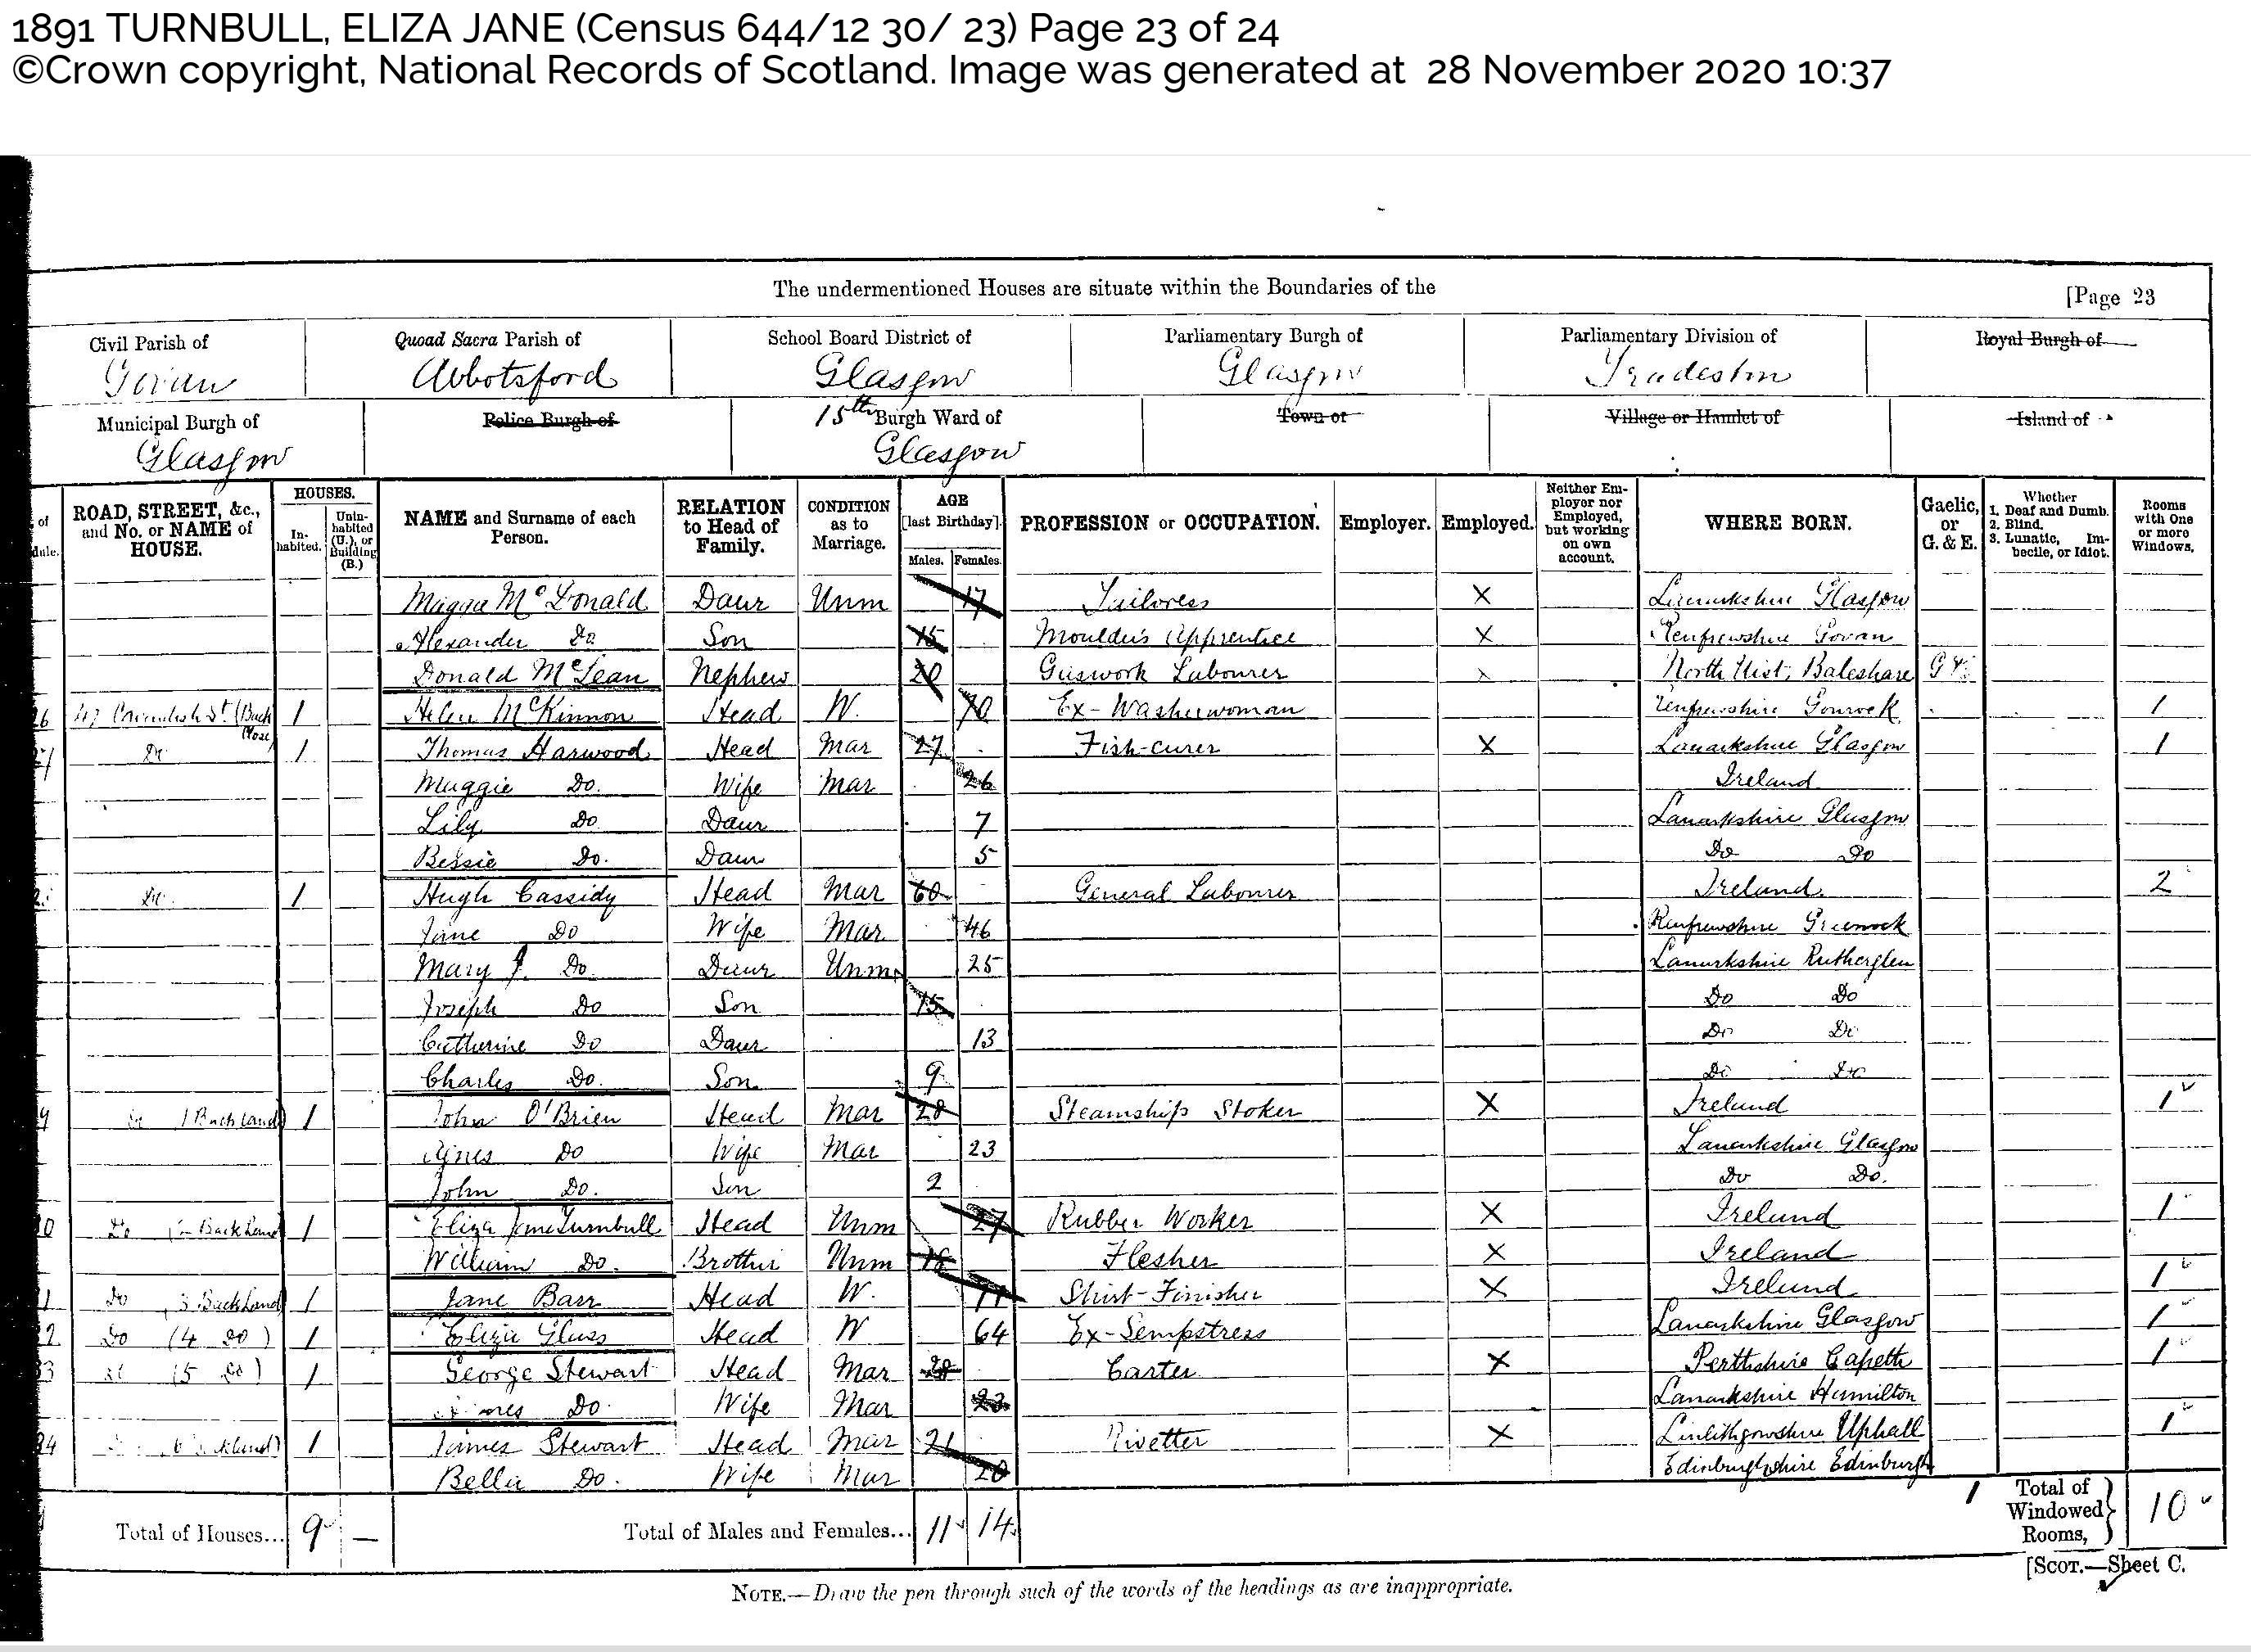 1891 TURNBULL, ELIZA JANE (Census 644/12 30/ 23) Page 23 of 24
©Crown copyright, National Records of Scotland. Image was generated at 28 November 2020 10:37
The undermentioned Houses are situate within the Boundaries of the [Page 23
Civil Parish of Quoad Sacra Parish of School Board District of Parliamentary Burgh of Parliamentary Division of Royal Burgh of
Govan Abbotsford Glasgow Glasgow Tradeston
Municipal Burgh of Police Burgh of 15th Burgh Ward of Town of Village or Hamlet of Island of
Glasgow Glasgow
of dule. ROAD, STREET, &c., and No. or NAME of HOUSE. HOUSES. Inhabited. Uninhabited (U.), or Building (B.) NAME and Surname of each Person. RELATION to Head of Family. CONDITION as to Marriage. AGE [last Birthday]. Males. Females. PROFESSION or OCCUPATION. Employer. Employed. Neither Employer nor Employed, but working on own account. WHERE BORN. Gaelic, or G. & E. Whether 1. Deaf and Dumb. 2. Blind. 3. Lunatic, Imbecile, or Idiot. Rooms with One or more Windows.
Maggie McDonald Daur Unm 17 Tailoress X Lanarkshire Glasgow
Alexander Do Son 15 Moulder's Apprentice X Renfrewshire Govan
Donald McLean Nephew 20 Gaswork Labourer X North Uist, Baleshare G & E
26 47 Cavendish St (Back Close) 1 Helen McKinnon Head W. 70 Ex-Washerwoman Renfrewshire Gourock 1
27 Do 1 Thomas Harwood Head Mar 27 Fish-curer X Lanarkshire Glasgow 1
Maggie Do. Wife Mar 26 Ireland
Lily Do Daur 7 Lanarkshire Glasgow
Bessie Do. Daur 5 Do Do
Do 1 Hugh Cassidy Head Mar 60 General Labourer Ireland 2
Jane Do Wife Mar 46 Renfrewshire Greenock
Mary J. Do. Daur Unm 25 Lanarkshire Rutherglen
Joseph Do Son 15 Do Do
Catherine Do Daur 13 Do Do
Charles Do. Son 9 Do Do
9 Do 1 Back Land) 1 John O'Brien Head Mar 28 Steamship Stoker X Ireland 1
Agnes Do Wife Mar 23 Lanarkshire Glasgow
John Do. Son 2 Do Do.
30 Do (2 Back Land 1 Eliza Jane Turnbull Head Unm 27 Rubber Worker X Ireland 1
William Do. Brother Unm 18 Flesher X Ireland
1 Do 3 Back Land) 1 Jane Barr Head W. Shirt-Finisher X Ireland 1
32 Do (4 Do) 1 Eliza Glass Head W 64 Ex-Sempstress Lanarkshire Glasgow 1
33 Do (5 Do) 1 George Stewart Head Mar 28 Carter X Perthshire Capeth 1
Do. Wife Mar 23 Lanarkshire Hamilton
34 6 Backland) 1 James Stewart Head Mar 21 Rivetter X Linlithgowshire Uphall 1
Bella Do. Wife Mar 20 Edinburghshire Edinburgh
Total of Houses... 9 — Total of Males and Females... 11 14 1 Total of Windowed Rooms, 10
[SCOT.—Sheet C.
NOTE.—Draw the pen through such of the words of the headings as are inappropriate.